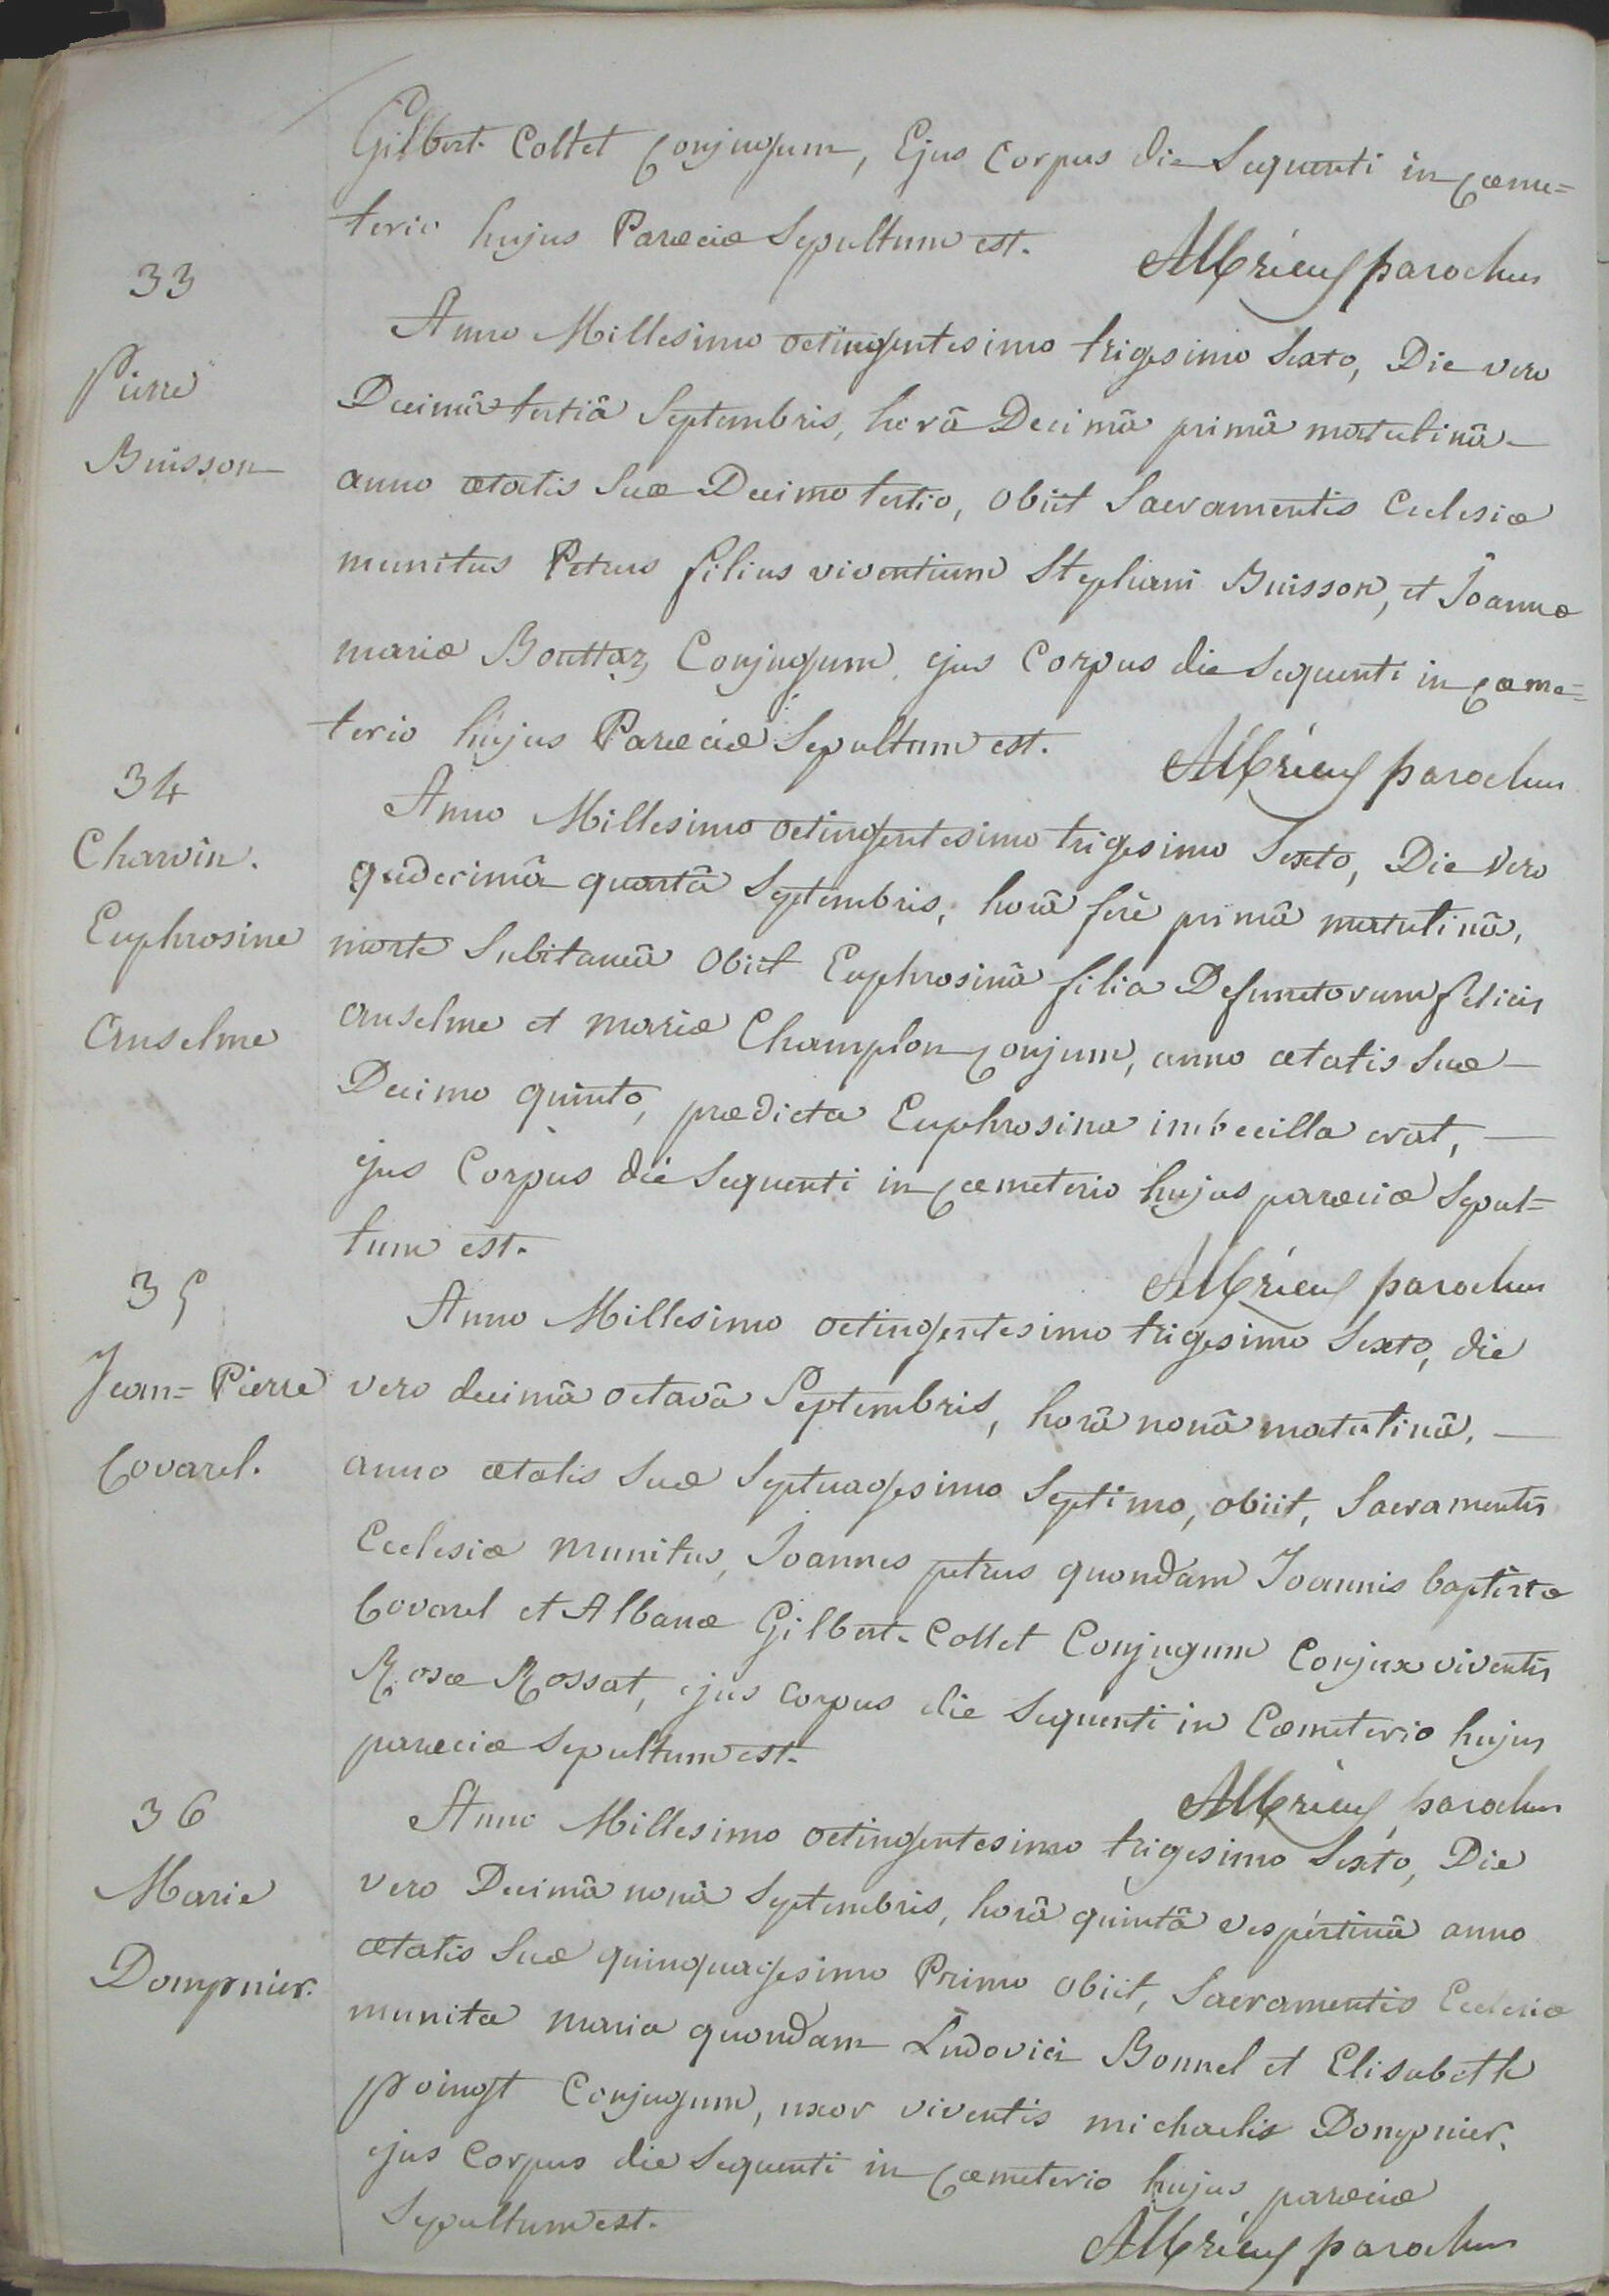 Gilbert-Collet Conjugum, Ejus Corpus die Sequenti in Cœme=
terio hujus Parœciæ Sepultum est.
parochus
33
Pierre
Buisson
Anno Millesimo octingentesimo trigesimo Sexto, Die vero
Decimâ tertiâ Septembris, horâ Decimâ primâ matutinâ —
anno ætatis Suæ Decimo tertio, obiit Sacramentis Ecclesiæ
munitus Petrus filius viventium Stephani Buisson, et Joannæ
mariæ Bouttaz Conjugum, ejus Corpus die Sequenti in Cœme=
terio hujus Parœciæ Sepultum est.
parochus
34
Charvin.
Euphrosine
Anselme
Anno Millesimo octingentesimo trigesimo Sexto, Die Vero
decimâ quartâ Septembris, horâ ferè primâ matutinâ,
morte Subitaneâ Obiit Euphrosina filia Defunctorum felicis
Anselme et mariæ Champlon conjum, anno ætatis Suæ —
Decimo quinto, prædicta Euphrosina imbecilla erat, —
ejus Corpus die Sequenti in Cœmeterio hujus parœciæ Sepul=
tum est.
parochus
35
Jean=Pierre
Covarel.
Anno Millesimo octingentesimo trigesimo Sexto, die
vero decimâ octavâ Septembris, horâ nonâ matutinâ, —
anno ætatis Suæ Septuagesimo Septimo, obiit, Sacramentis
Ecclesiæ munitus, Joannes petrus quondam Joannis baptistæ
Covarel et Albanæ Gilbert-Collet Conjugum Conjux viventis
Rosæ Rossat, ejus corpus die Sequenti in Cœmeterio hujus
parœciæ Sepultum est.
parochus
36
Marie
Dompnier.
Anno Millesimo octingentesimo trigesimo Sexto, Die
vero Decimâ nonâ Septembris, horâ quintâ vespertinâ anno
ætatis Suæ quinquagesimo Primo obiit, Sacramentis Ecclesiæ
munita maria quondam Ludovici Bonnel et Elisabeth
poingt Conjugum, uxor viventis michaelis Dompnier.
ejus Corpus die Sequenti in Cœmeterio hujus parœciæ
Sepultum est.
parochus